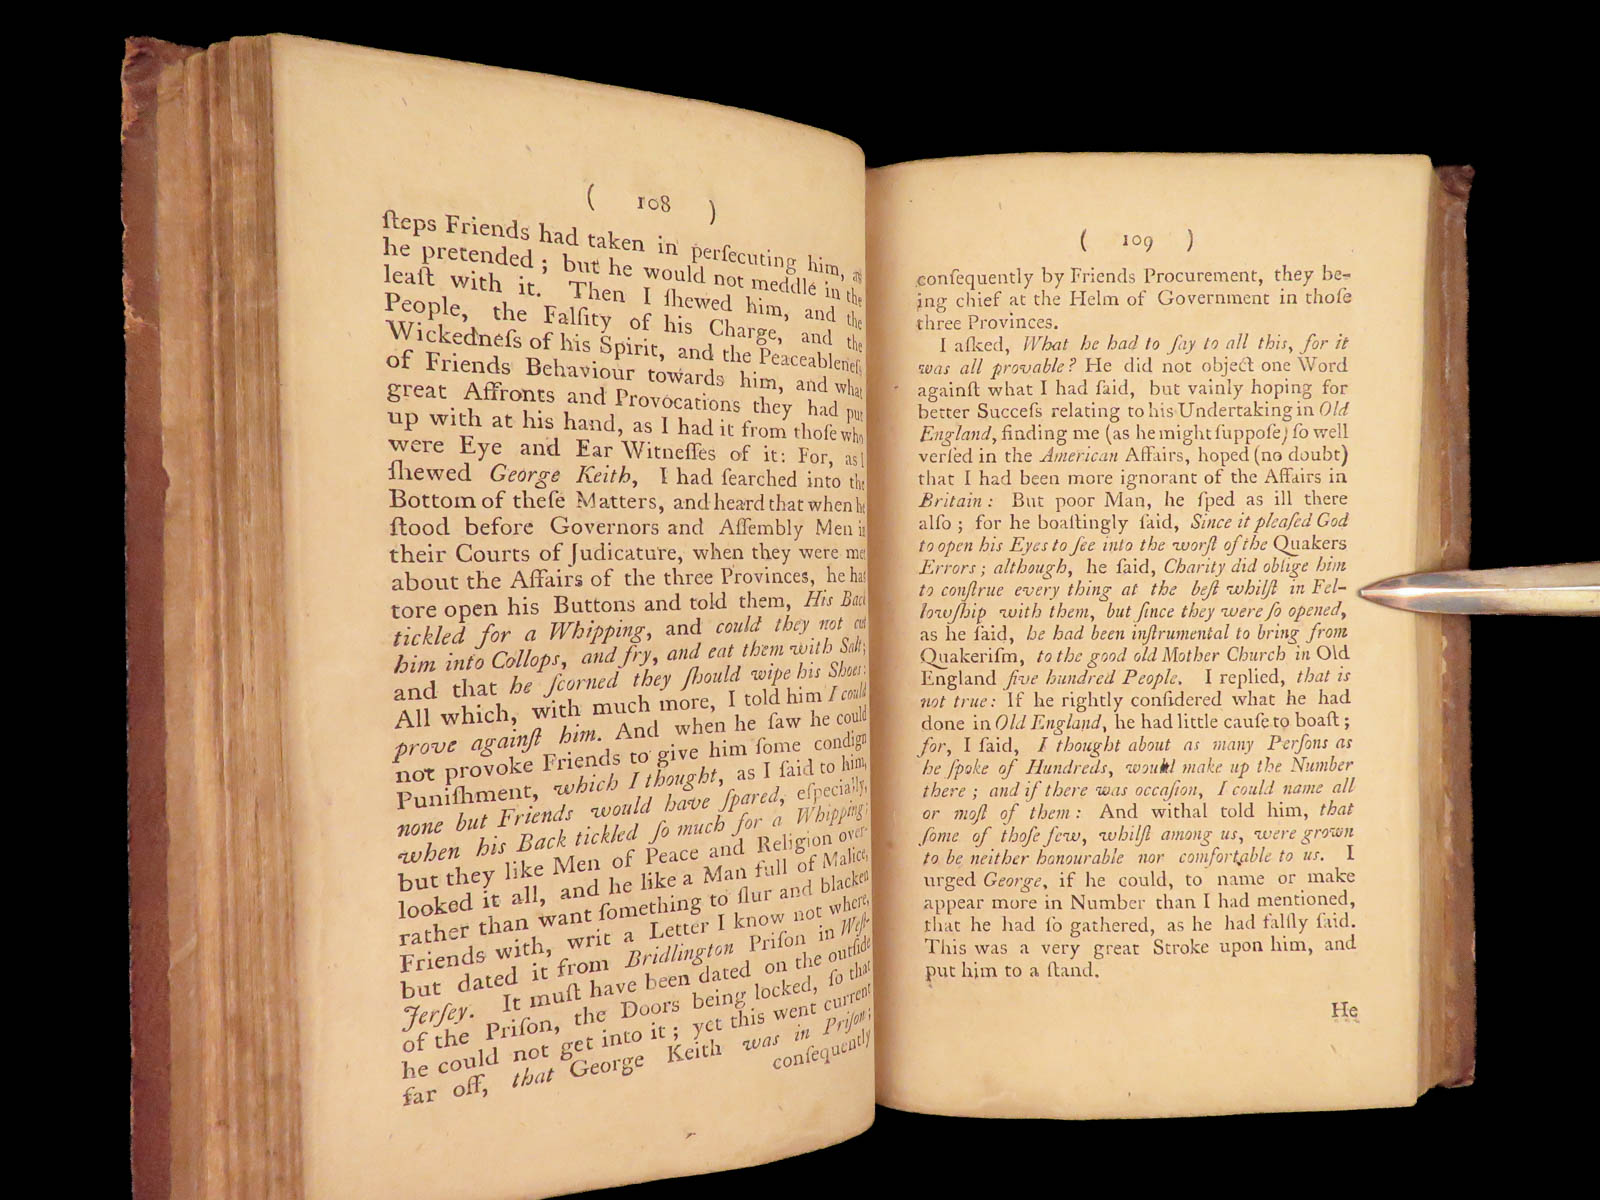 ( 108 )
ſteps Friends had taken in perſecuting him, as
he pretended ; but he would not meddle in the
leaſt with it. Then I ſhewed him, and the
People, the Falſity of his Charge, and the
Wickedneſs of his Spirit, and the Peaceableneſs
of Friends Behaviour towards him, and what
great Affronts and Provocations they had put
up with at his hand, as I had it from thoſe who
were Eye and Ear Witneſſes of it: For, as I
ſhewed George Keith, I had ſearched into the
Bottom of theſe Matters, and heard that when he
ſtood before Governors and Aſſembly Men in
their Courts of Judicature, when they were met
about the Affairs of the three Provinces, he has
tore open his Buttons and told them, His Back
tickled for a Whipping, and could they not cut
him into Collops, and fry, and eat them with Salt;
and that he ſcorned they ſhould wipe his Shoes:
All which, with much more, I told him I could
prove againſt him. And when he ſaw he could
not provoke Friends to give him ſome condign
Puniſhment, which I thought, as I ſaid to him,
none but Friends would have ſpared, eſpecially,
when his Back tickled ſo much for a Whipping;
but they like Men of Peace and Religion over-
looked it all, and he like a Man full of Malice,
rather than want ſomething to ſlur and blacken
Friends with, writ a Letter I know not where,
but dated it from Bridlington Priſon in Weſt-
Jerſey. It muſt have been dated on the outſide
of the Priſon, the Doors being locked, ſo that
he could not get into it ; yet this went current
far off, that George Keith was in Priſon;
conſequently
( 109 )
conſequently by Friends Procurement, they be-
ing chief at the Helm of Government in thoſe
three Provinces.
I aſked, What he had to ſay to all this, for it
was all provable? He did not object one Word
againſt what I had ſaid, but vainly hoping for
better Succeſs relating to his Undertaking in Old
England, finding me (as he might ſuppoſe) ſo well
verſed in the American Affairs, hoped (no doubt)
that I had been more ignorant of the Affairs in
Britain : But poor Man, he ſped as ill there
alſo ; for he boaſtingly ſaid, Since it pleaſed God
to open his Eyes to ſee into the worſt of the Quakers
Errors ; although, he ſaid, Charity did oblige him
to conſtrue every thing at the beſt whilſt in Fel-
lowſhip with them, but ſince they were ſo opened,
as he ſaid, he had been inſtrumental to bring from
Quakeriſm, to the good old Mother Church in Old
England five hundred People. I replied, that is
not true : If he rightly conſidered what he had
done in Old England, he had little cauſe to boaſt ;
for, I ſaid, I thought about as many Perſons as
he ſpoke of Hundreds, would make up the Number
there ; and if there was occaſion, I could name all
or moſt of them : And withal told him, that
ſome of thoſe few, whilſt among us, were grown
to be neither honourable nor comfortable to us. I
urged George, if he could, to name or make
appear more in Number than I had mentioned,
that he had ſo gathered, as he had falſly ſaid.
This was a very great Stroke upon him, and
put him to a ſtand.
He